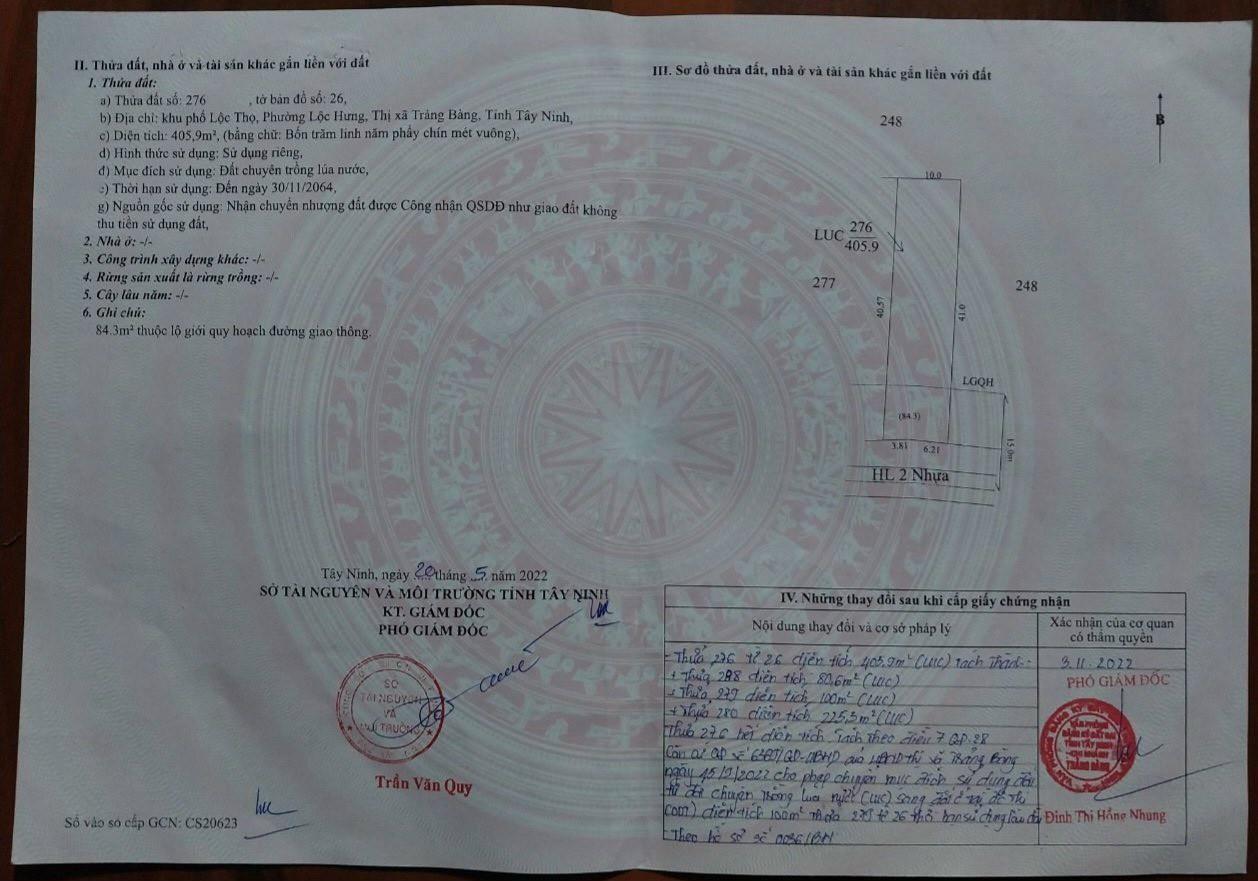 II. Thửa đất, nhà ở và tài sản khác gắn liền với đất
1. Thửa đất:
a) Thửa đất số: 276 , tờ bản đồ số: 26,
b) Địa chỉ: khu phố Lộc Thọ, Phường Lộc Hưng, Thị xã Trảng Bàng, Tỉnh Tây Ninh,
c) Diện tích: 405,9m², (bằng chữ: Bốn trăm linh năm phẩy chín mét vuông),
d) Hình thức sử dụng: Sử dụng riêng,
đ) Mục đích sử dụng: Đất chuyên trồng lúa nước,
e) Thời hạn sử dụng: Đến ngày 30/11/2064,
g) Nguồn gốc sử dụng: Nhận chuyển nhượng đất được Công nhận QSDĐ như giao đất không
thu tiền sử dụng đất,
2. Nhà ở: -/-
3. Công trình xây dựng khác: -/-
4. Rừng sản xuất là rừng trồng: -/-
5. Cây lâu năm: -/-
6. Ghi chú:
84.3m² thuộc lộ giới quy hoạch đường giao thông.
Tây Ninh, ngày 20 tháng 5 năm 2022
SỞ TÀI NGUYÊN VÀ MÔI TRƯỜNG TỈNH TÂY NINH
KT. GIÁM ĐỐC
PHÓ GIÁM ĐỐC
SỞ
TÀI NGUYÊN
VÀ
MÔI TRƯỜNG
Trần Văn Quy
Số vào sổ cấp GCN: CS20623
III. Sơ đồ thửa đất, nhà ở và tài sản khác gắn liền với đất
B
248
10.0
LUC 276
405.9
277
248
40.57
41.0
LGQH
(84.3)
3.81
6.21
15.0m
HL 2 Nhựa
IV. Những thay đổi sau khi cấp giấy chứng nhận
Nội dung thay đổi và cơ sở pháp lý
Xác nhận của cơ quan
có thẩm quyền
- Thửa 276 tờ 26 diện tích 405,9m² (LUC) tách thành:
+ Thửa 278 diện tích 80,6m² (LUC)
+ Thửa 279 diện tích 100m² (LUC)
+ Thửa 280 diện tích 225,3m² (LUC)
Thửa 276 hết diện tích. Tách theo điều 7 QĐ 28
Căn cứ QĐ số /QĐ-UBND của UBND thị xã Trảng Bàng
ngày /2022 cho phép chuyển mục đích sử dụng đất
từ đất chuyên trồng lúa nước (LUC) sang đất ở tại đô thị
(ODT) diện tích 100m² thửa 279 tờ 26 thời hạn sử dụng lâu dài
- Theo hồ sơ số
3.11.2022
PHÓ GIÁM ĐỐC
VĂN PHÒNG
ĐĂNG KÝ ĐẤT ĐAI
TỈNH TÂY NINH
CHI NHÁNH
TRẢNG BÀNG
Đinh Thị Hồng Nhung